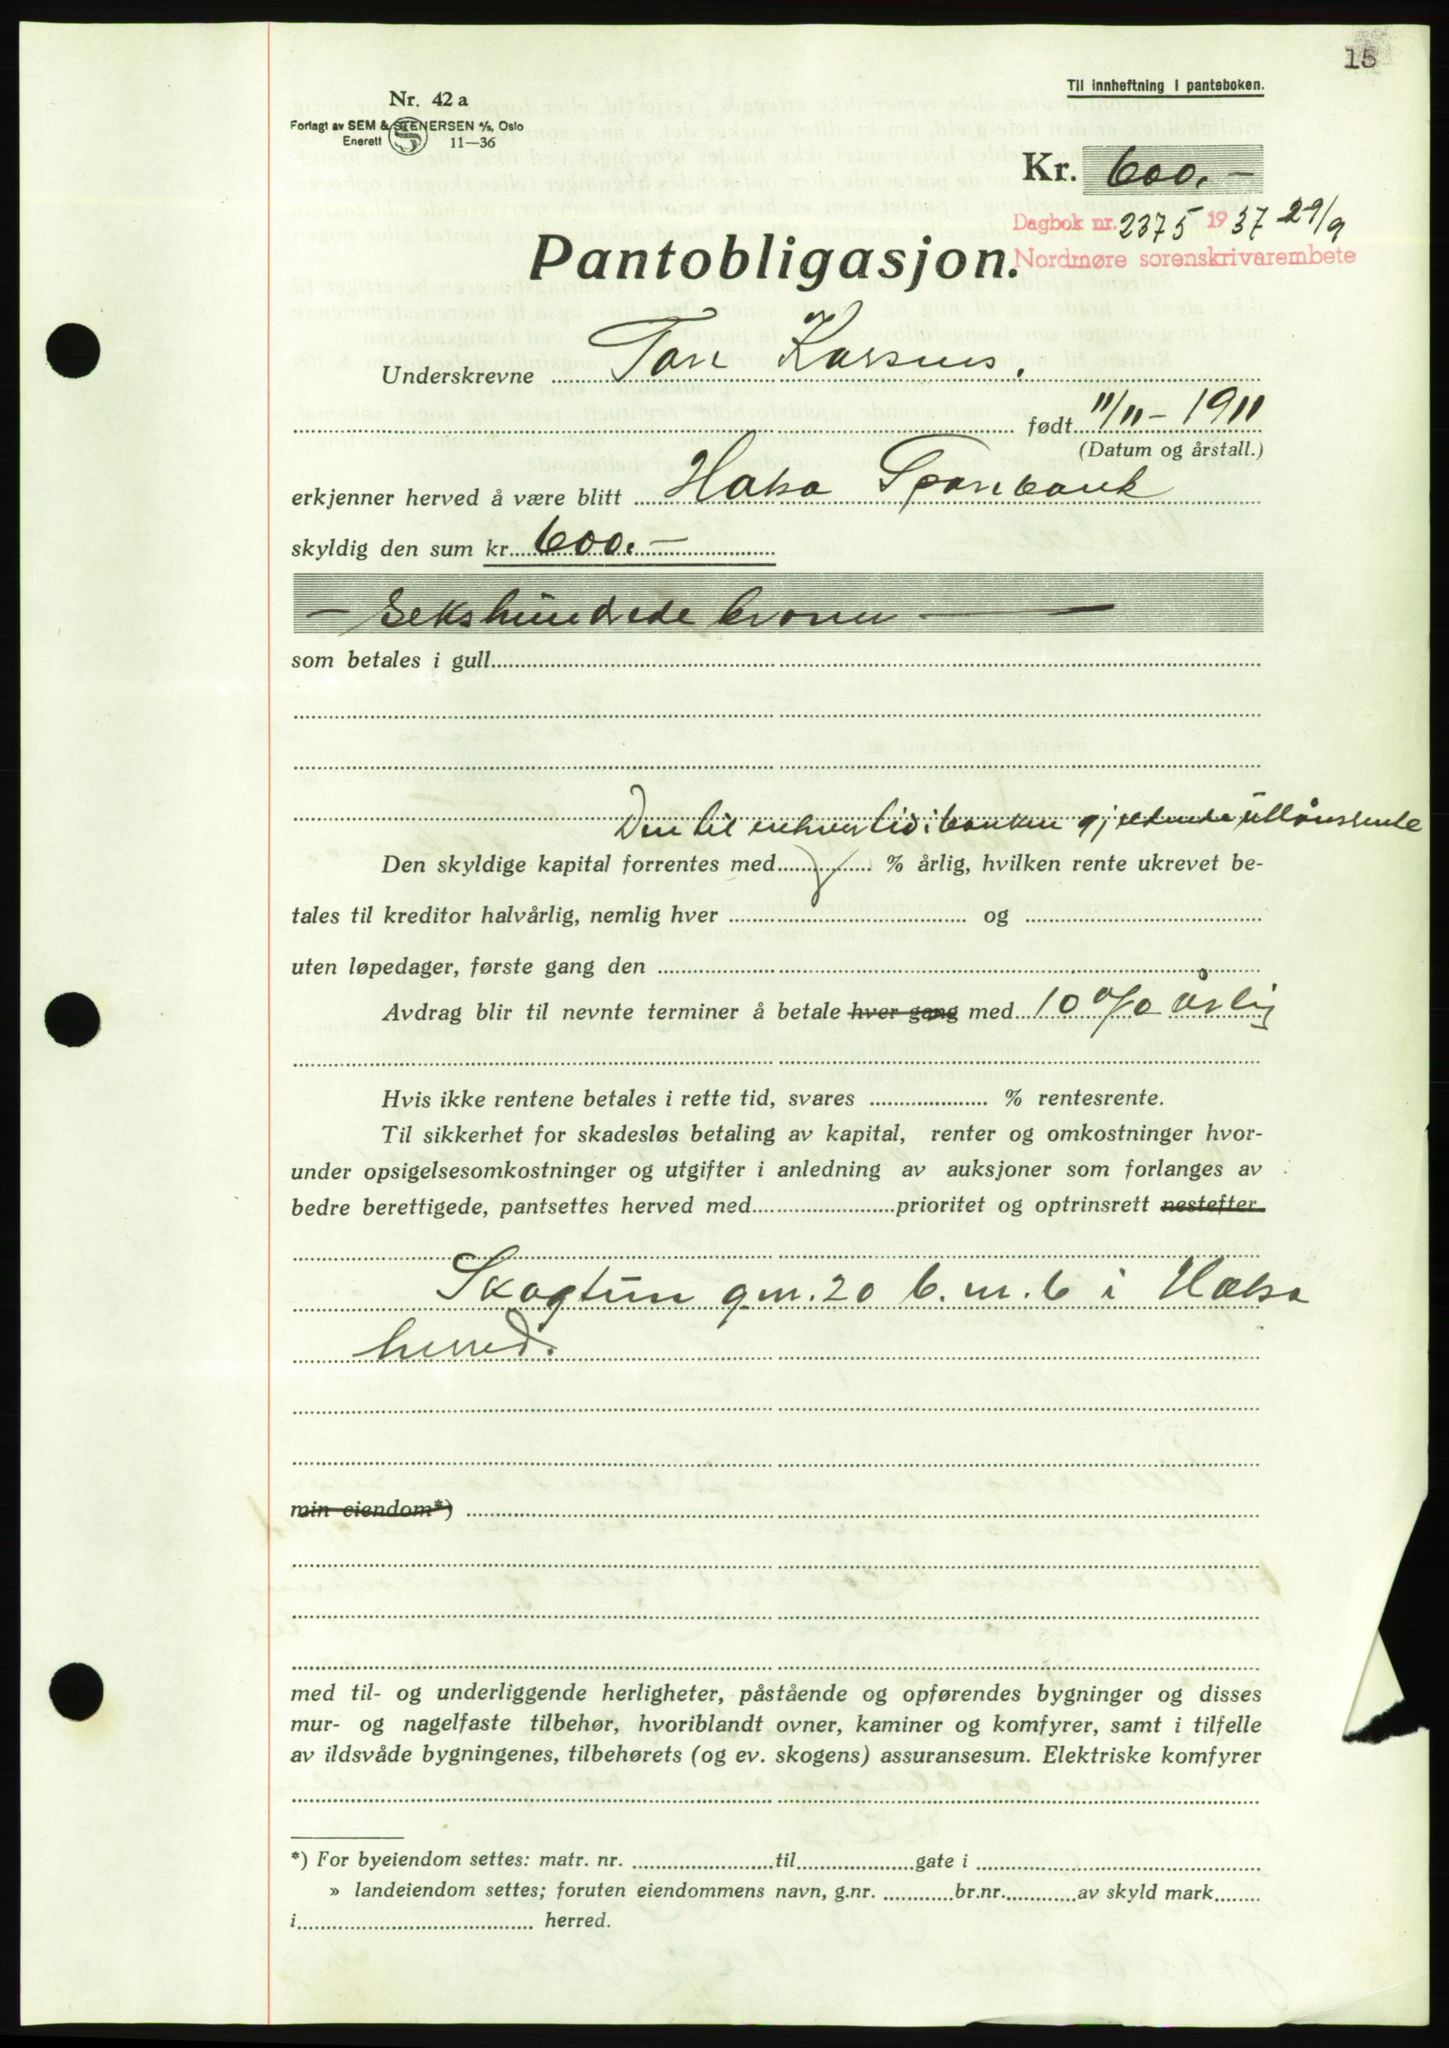 15
Til innheftning i panteboken.
Nr. 42 a
Forlagt av SEM & STENERSEN A/S, Oslo
Enerett 11—36
Kr. 600.—
Dagbok nr. 2375 1937 29/9
Nordmøre sorenskrivarembete
Pantobligasjon.
Underskrevne Tore
født 11/11 - 1911
(Datum og årstall.)
erkjenner herved å være blitt Halsa Sparebank
skyldig den sum kr. 600.—
— Sekshundrede kroner —
som betales i gull
Den til enhver tid i banken gjeldende utlånsrente
Den skyldige kapital forrentes med % årlig, hvilken rente ukrevet be-
tales til kreditor halvårlig, nemlig hver og
uten løpedager, første gang den
Avdrag blir til nevnte terminer å betale hver gang med 10 % årlig
Hvis ikke rentene betales i rette tid, svares % rentesrente.
Til sikkerhet for skadesløs betaling av kapital, renter og omkostninger hvor-
under opsigelsesomkostninger og utgifter i anledning av auksjoner som forlanges av
bedre berettigede, pantsettes herved med prioritet og optrinsrett nestefter
Skogtun g.nr. 20 b.nr. 6 i Halsa
herred.
min eiendom*)
med til- og underliggende herligheter, påstående og opførendes bygninger og disses
mur- og nagelfaste tilbehør, hvoriblandt ovner, kaminer og komfyrer, samt i tilfelle
av ildsvåde bygningenes, tilbehørets (og ev. skogens) assuransesum. Elektriske komfyrer
*) For byeiendom settes: matr. nr. til gate i
» landeiendom settes; foruten eiendommens navn, g.nr. br.nr. av skyld mark
i herred.